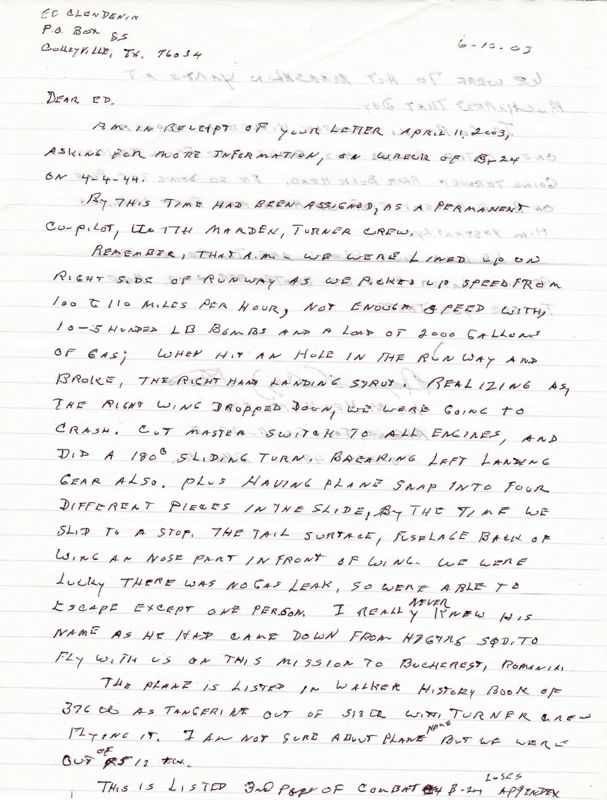 ED CLENDENIN
P.O. BOX 85
COLLEYVILLE, TX. 76034
6-10-03
DEAR ED.
AM IN RECEIPT OF YOUR LETTER, APRIL 11, 2003,
ASKING FOR MORE INFORMATION, ON WRECK OF B-24
ON 4-4-44.
BY THIS TIME HAD BEEN ASSIGNED, AS A PERMANENT
CO-PILOT, WITH MARDEN, TURNER CREW.
REMEMBER, THAT A.M. - WE WERE LINED UP ON
RIGHT SIDE OF RUNWAY AS WE PICKED UP SPEED FROM
100 TO 110 MILES PER HOUR, NOT ENOUGH SPEED WITH,
10-5 HUNDED LB BOMBS AND A LOAD OF 2000 GALLONS
OF GAS; WHEN HIT AN HOLE IN THE RUNWAY AND
BROKE, THE RIGHT HAND LANDING STRUT. REALIZING AS,
THE RIGHT WING DROPPED DOWN, WE WERE GOING TO
CRASH. CUT MASTER SWITCH TO ALL ENGINES, AND
DID A 180° SLIDING TURN. BREAKING LEFT LANDING
GEAR ALSO. PLUS HAVING PLANE SNAP INTO FOUR
DIFFERENT PIECES IN THE SLIDE, BY THE TIME WE
SLID TO A STOP. THE TAIL SURFACE, FUSELAGE BACK OF
WING AN NOSE PART IN FRONT OF WING. WE WERE
LUCKY THERE WAS NO GAS LEAK, SO WERE ABLE TO
ESCAPE EXCEPT ONE PERSON. I REALLY NEVER KNEW HIS
NAME AS HE HAD CAME DOWN FROM HDGTRS SQD. TO
FLY WITH US ON THIS MISSION TO BUCHEREST, ROMANIA
THE PLANE IS LISTED IN WALKER HISTORY BOOK OF
376 AS TANGERINE OUT OF 513 WITH TURNER CREW
FLYING IT. I AM NOT SURE ABOUT PLANE NAME BUT WE WERE
OUT OF 512
THIS IS LISTED 3RD PAGE OF COMBAT B-24 LOSES APPINDEX